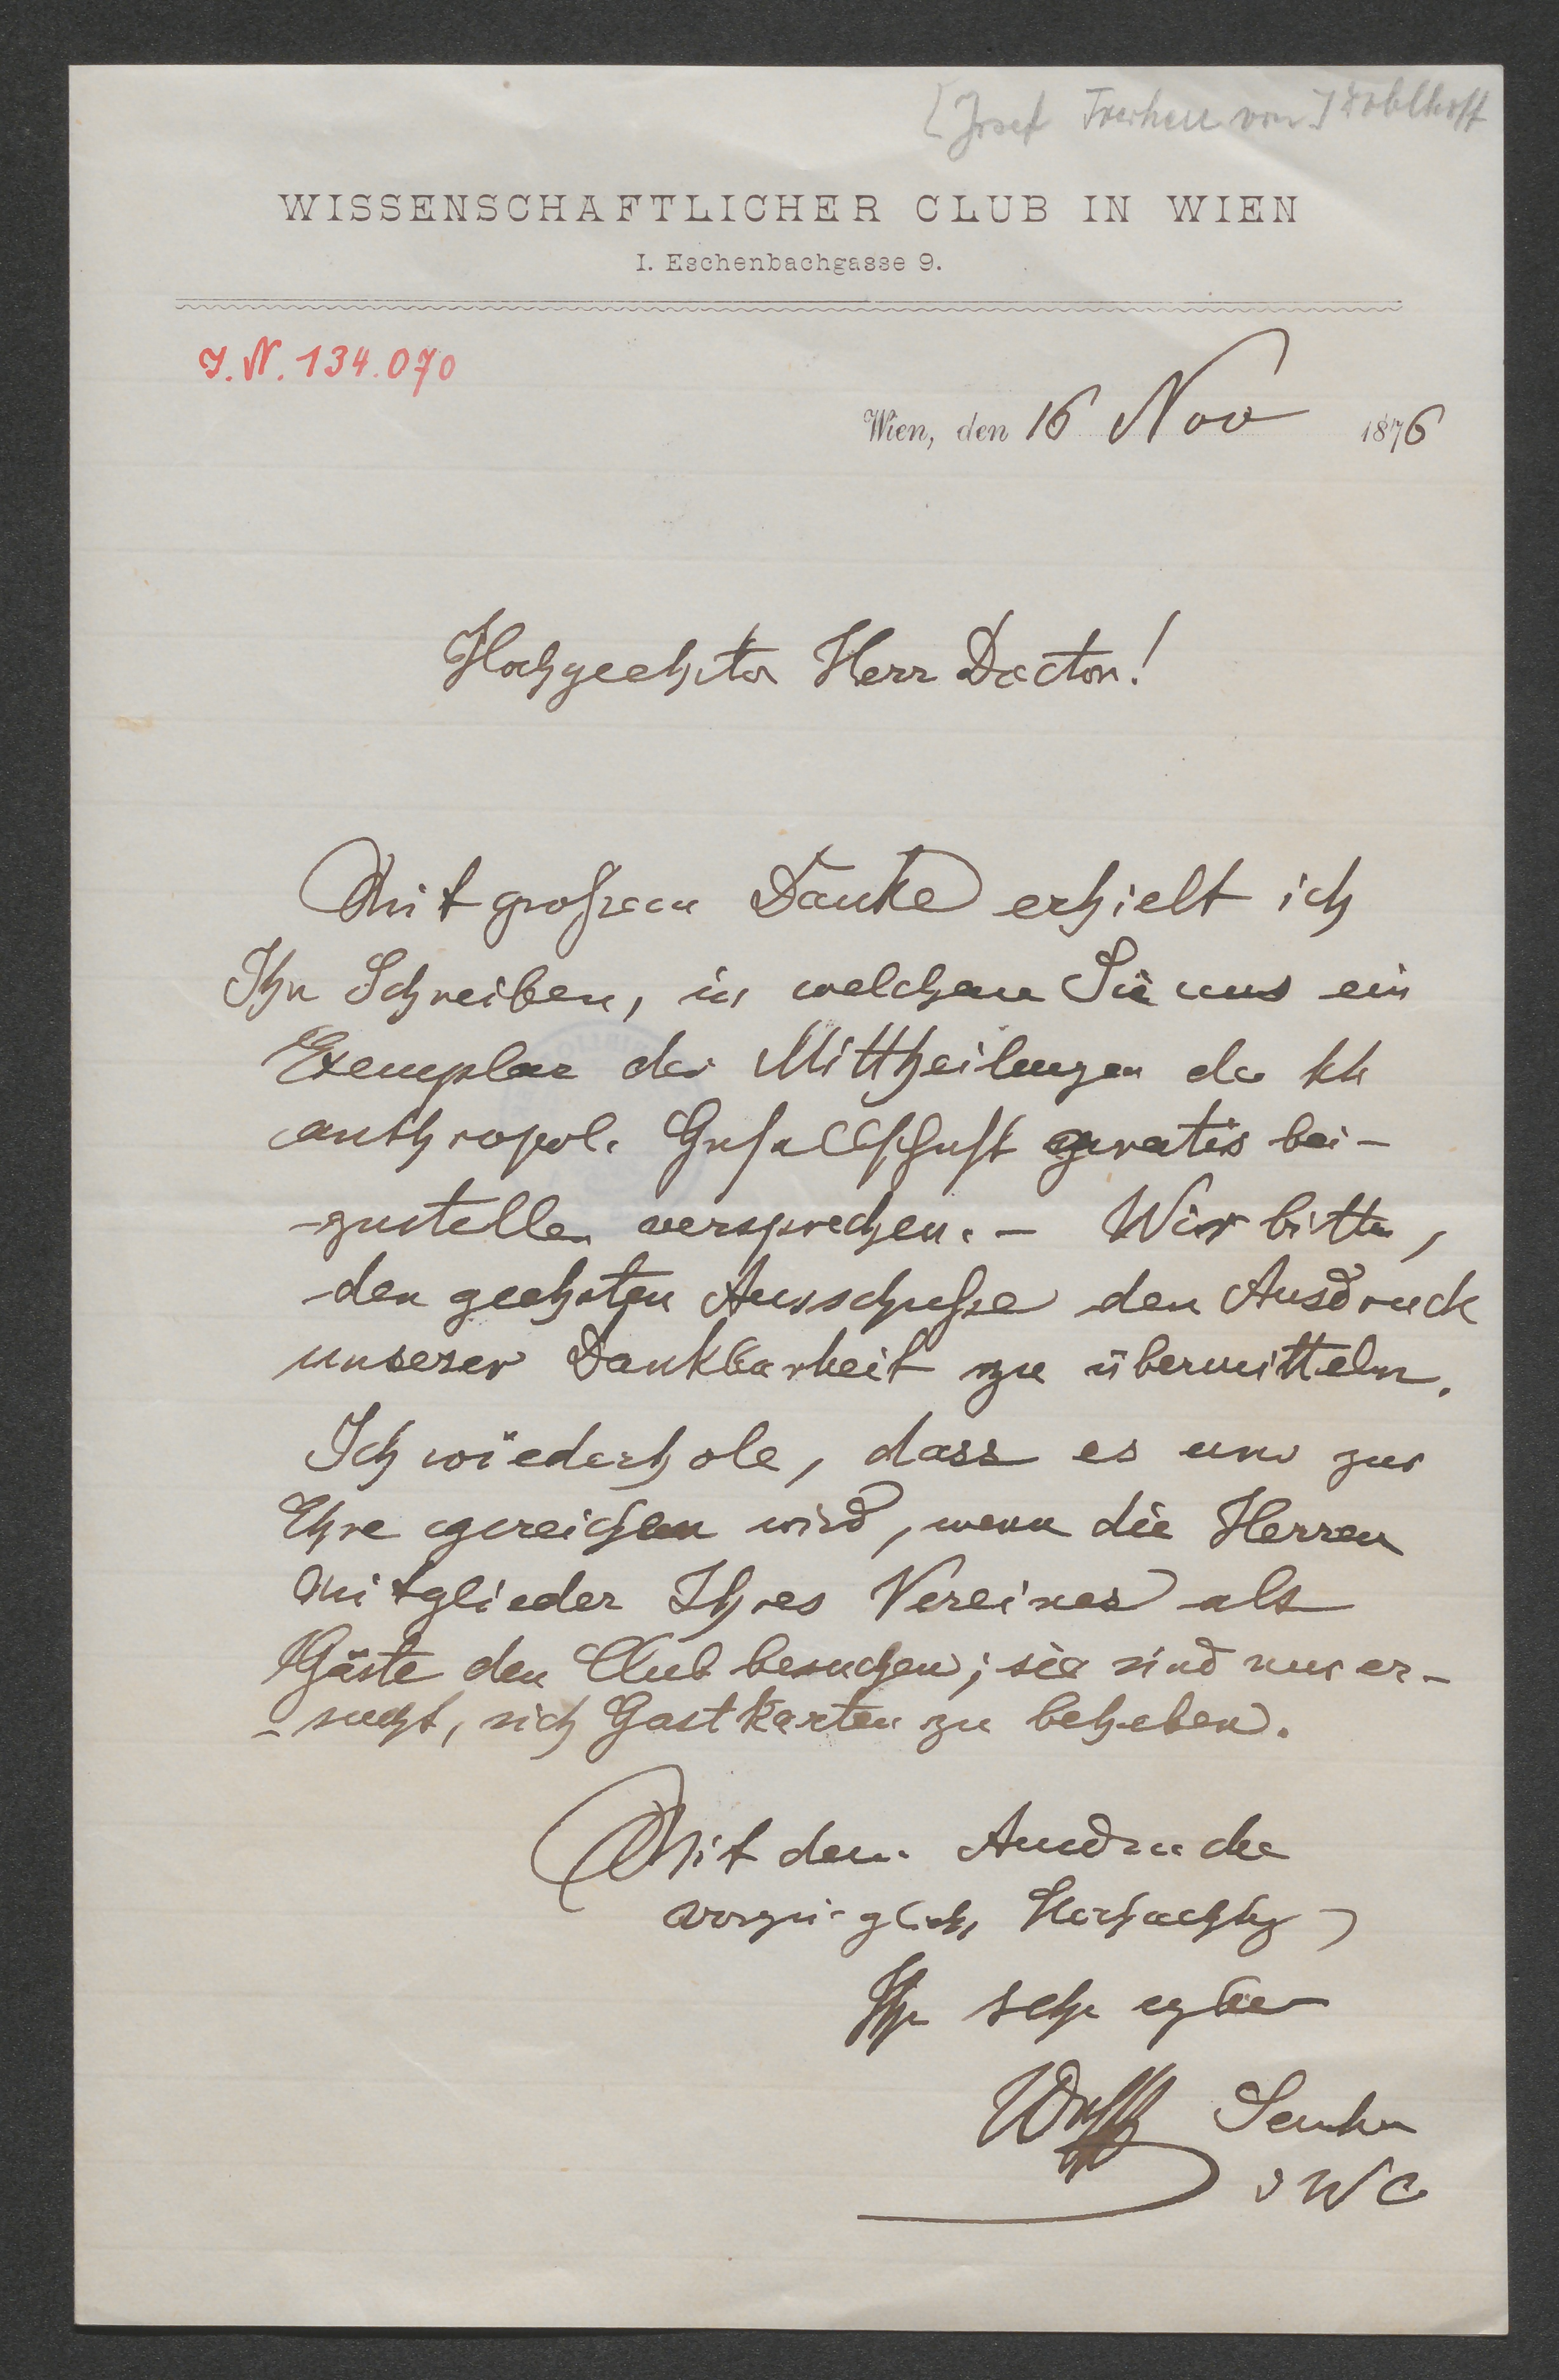 [Josef Freiherr von] Doblhoff
WISSENSCHAFTLICHER CLUB IN WIEN
I. Eschenbachgasse 9.
I.N. 134.070
Wien, den 16 Nov 1876
Hochgeehrter Herr Doctor!
Mit großem Danke erhielt ich
Ihr Schreiben, in welchem Sie uns ein
Exemplar der Mittheilungen der kk
anthropol. Gesellschaft gratis bei-
-zustellen versprechen. – Wir bitten,
den geehrten Ausschuße den Ausdruck
unserer Dankbarkeit zu übermitteln.
Ich wiederhole, dass es uns zur
Ehre gereichen wird, wenn die Herren
Mitglieder Ihres Vereines als
Gäste den Club besuchen; sie sind nur er-
-sucht, sich Gastkarten zu beheben.
Mit dem Ausdrucke
vorzüglich Hochachtg
Ihr sehr ergbr
WC